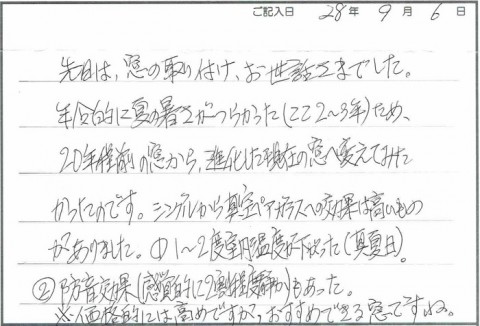 ご記入日 28年 9月 6日
先日は、窓の取り付け、お世話さまでした。
年令的に夏の暑さがつらかった(ここ2~3年)ため、
20年程前の窓から、進化した現在の窓へ変えてみた
かったのです。シングルから真空ペアガラスへの効果は高いもの
がありました。①1~2度室内温度が下がった(真夏日)。
②防音効果(感覚的に2割程度静か)もあった。
※価格的には高めですが、おすすめできる窓ですね。